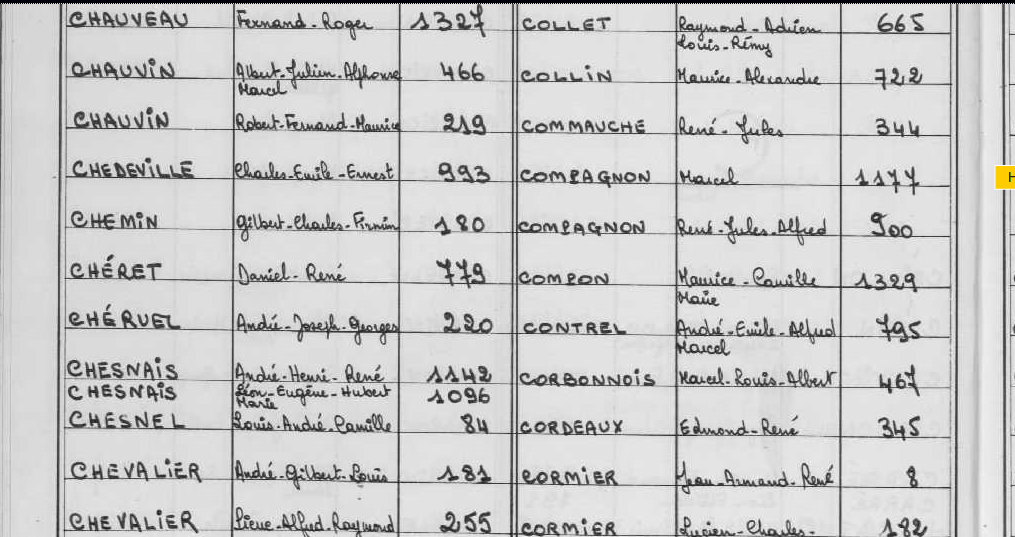 CHAUVEAU Fernand-Roger 1327
CHAUVIN Albert-Julien-Alphonse 466
Marcel
CHAUVIN Robert-Fernand-Maurice 219
CHEDEVILLE Charles-Emile-Ernest 993
CHEMIN Gilbert-Charles-Firmin 180
CHÉRET Daniel-René 779
CHÉRUEL André-Joseph-Georges 220
CHESNAIS André-Henri-René 1142
CHESNAIS Léon-Eugène-Hubert 1096
Marie
CHESNEL Louis-André-Camille 84
CHEVALIER André-Gilbert-Louis 181
CHEVALIER Pierre-Alfred-Raymond 255
COLLET Raymond-Adrien 665
Louis-Rémy
COLLIN Maurice-Alexandre 722
COMMAUCHE René-Jules 344
COMPAGNON Marcel 1177
COMPAGNON René-Jules-Alfred 900
COMPON Maurice-Camille 1329
Marie
CONTREL André-Emile-Alfred 795
Marcel
CORBONNOIS Marcel-Louis-Albert 467
CORDEAUX Edmond-René 345
CORMIER Jean-Armand-René 8
CORMIER Lucien-Charles- 182
H